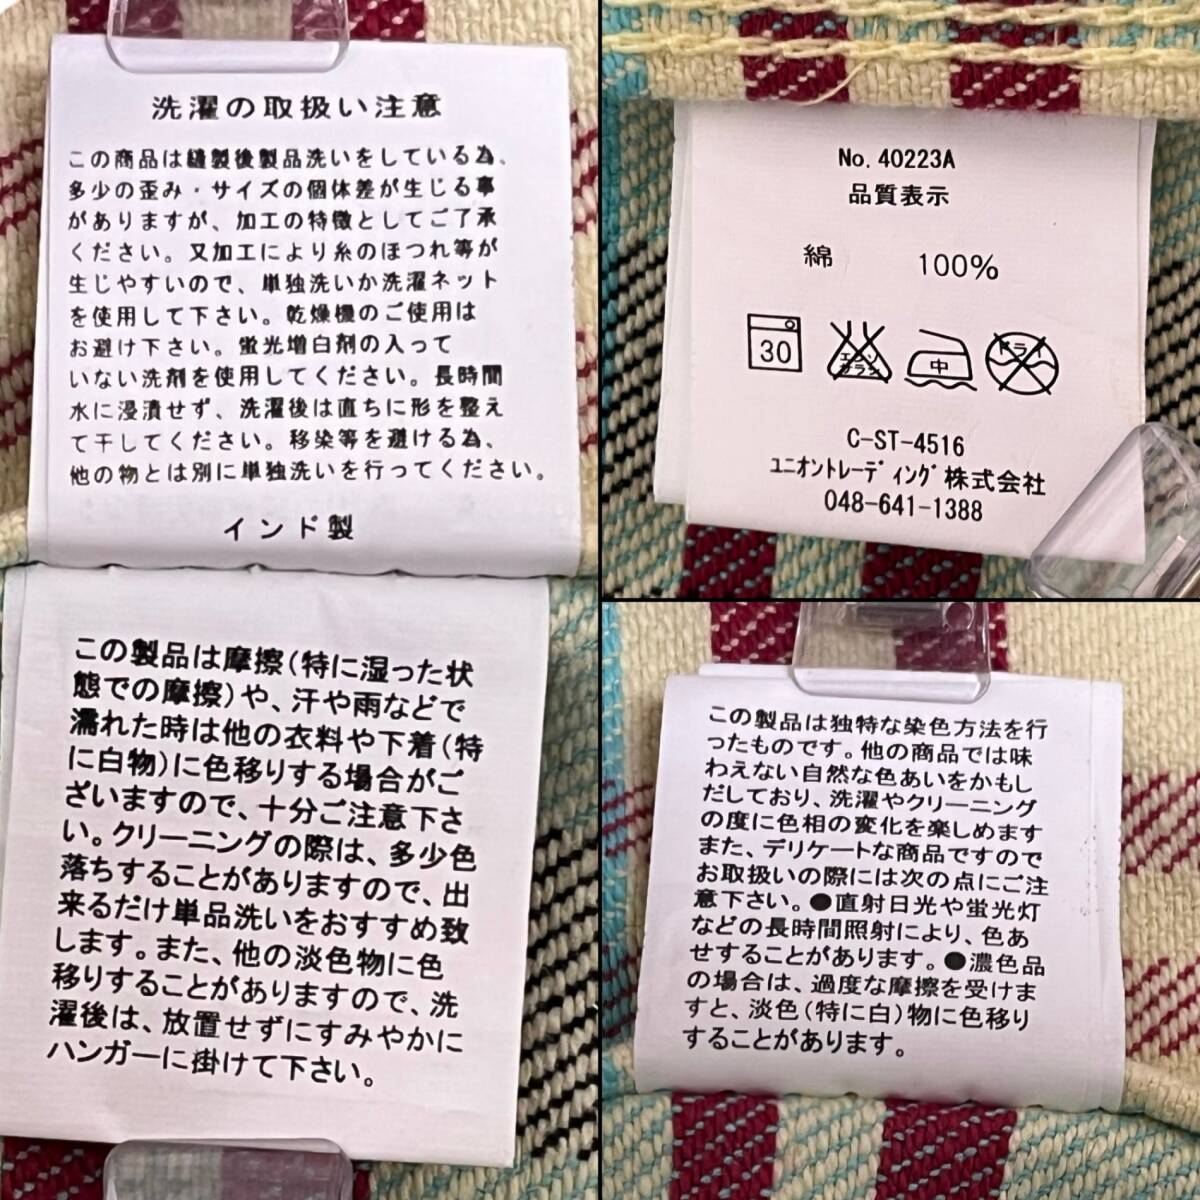 洗濯の取扱い注意
この商品は縫製後製品洗いをしている為、
多少の歪み・サイズの個体差が生じる事
がありますが、加工の特徴としてご了承
ください。又加工により糸のほつれ等が
生じやすいので、単独洗いか洗濯ネット
を使用して下さい。乾燥機のご使用は
お避け下さい。蛍光増白剤の入って
いない洗剤を使用してください。長時間
水に浸漬せず、洗濯後は直ちに形を整え
て干してください。移染等を避ける為、
他の物とは別に単独洗いを行ってください。
インド製
この製品は摩擦(特に湿った状
態での摩擦)や、汗や雨などで
濡れた時は他の衣料や下着(特
に白物)に色移りする場合がご
ざいますので、十分ご注意下さ
い。クリーニングの際は、多少色
落ちすることがありますので、出
来るだけ単品洗いをおすすめ致
します。また、他の淡色物に色
移りすることがありますので、洗
濯後は、放置せずにすみやかに
ハンガーに掛けて下さい。
No. 40223A
品質表示
綿 100%
30
エンソ
サラシ
中
ドライ
C-ST-4516
ユニオントレーディング株式会社
048-641-1388
この製品は独特な染色方法を行
ったものです。他の商品では味
わえない自然な色あいをかもし
だしており、洗濯やクリーニング
の度に色相の変化を楽しめます
また、デリケートな商品ですので
お取扱いの際には次の点にご注
意下さい。●直射日光や蛍光灯
などの長時間照射により、色あ
せすることがあります。●濃色品
の場合は、過度な摩擦を受けま
すと、淡色(特に白)物に色移り
することがあります。